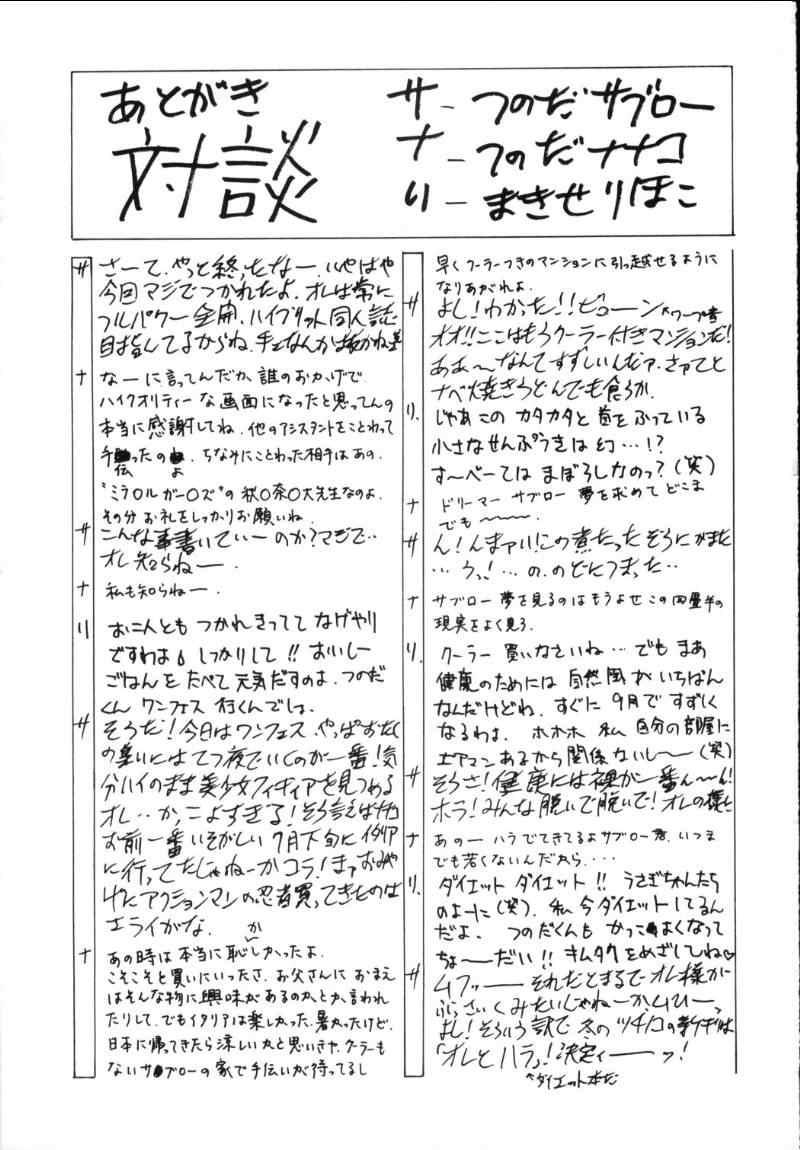 あとがき
対談
サ－つのだサブロー
ナ－つのだナナコ
り－まきせりほこ
サ さーて、やっと終ったなー、いやはや
今回マジでつかれたよ、オレは常に
フルパワー全開、ハイブリット同人誌
目指してるからね、手なんかは抜かねェ
ナ なーに言ってんだか、誰のおかげで
ハイクオリティーな画面になったと思ってんの
本当に感謝してね、他のアシスタントをことわって
手伝ったのよ、ちなみにことわった相手はあの、
"ミラ○ル ガー○ズ"の秋○奈○大先生なのよ、
その分お礼をしっかりお願いね、
サ こんな事書いていーのか？マジで‥
オレ知らねー、
ナ 私も知らねー、
り お二人とも つかれきってて なげやり
ですわよ しっかりして!! おいしー
ごはんを たべて 元気だすのよ、つのだ
くん ワンフェス 行くんでしょ、
サ そうだ！今日はワンフェス、やっぱおたく
の集いにはてつ夜でいくのが一番！気
分ハイのまま美少女フィギュアを見つめる
オレ‥かっこよすぎる！そう言えばナナコ
お前一番いそがしい7月下旬にイタリア
に行ってたじゃねーかコラ！まァおみや
げにアクションマンの忍者買ってきたのは
エライがな、
ナ あの時は本当に恥かしかったよ、
こそこそと買いにいったさ、お父さんにおまえ
はそんな物に興味があるのかとか言われ
たりして、でもイタリアは楽しかった、暑かったけど、
日本に帰ってきたら涼しいかと思いきや、クーラーも
ないサブローの家で手伝いが待ってるし
早くクーラーつきのマンションに引っ越せるように
なりあがれよ、
サ よし！わかった!!ビューン←ワープ音
オオ!!ここはもうクーラー付きマンションだ！
ああ〜なんてすずしいんだァ、さァてと
ナベ焼きうどんでも食うか、
り、 じゃあこの カタカタと首をふっている
小さなせんぷうきは幻…!?
す〜べーては まぼろしなのっ？（笑）
ナ ドリーマー サブロー 夢を求めてどこま
でも〜〜〜、
サ ん！んまァい！この煮たったぞうにがまた
…うっ！…の、のどにつまった‥
ナ サブロー 夢を見るのはもうよせ この四畳半の
現実をよく見ろ、
り、 クーラー 買いなさいね… でも まあ
健康のためには 自然風がいちばん
なんだけどね、すぐに 9月で すずしく
なるわよ、ホホホ 私 自分の部屋に
エアマンあるから関係ないし〜（笑）
サ そうさ！健康には裸が一番ん〜ん！
ホラ！みんな脱いで脱いで！オレの様に
ナ あのー ハラでてきてるよサブロー君、いつま
でも若くないんだから、‥‥
り、 ダイエット ダイエット!! うさぎちゃんたち
のよーに（笑）、私 今ダイエットしてるん
だよ、 つのだくんも かっこよくなって
ちょーだい!! キムタクをめざしてね♡
サ ムフッー それだとまるでオレ様が
ぶさいくみたいじゃねーか、ムひーっ
よし！そういう訳で 冬の ツチノコの新刊は
「オレとハラ」！決定ィーーッ！
↑ダイエット本だ